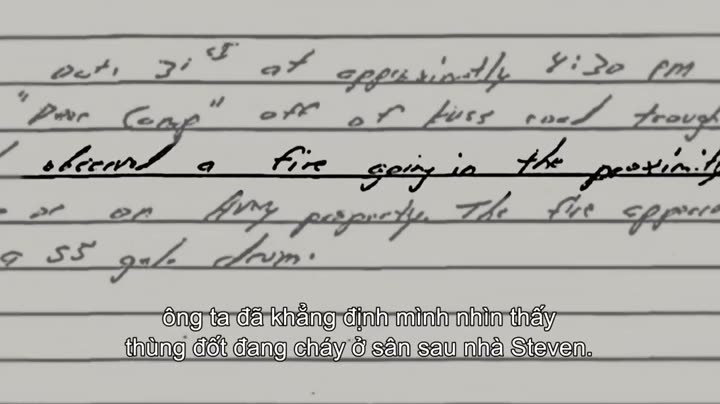 Oct. 31st at approximately 4:30 pm
"Deer Camp" off of Kuss road
observed a fire going in the proximity
or on Avery property. The fire appeared
a 55 gal. drum.
ông ta đã khẳng định mình nhìn thấy
thùng đốt đang cháy ở sân sau nhà Steven.